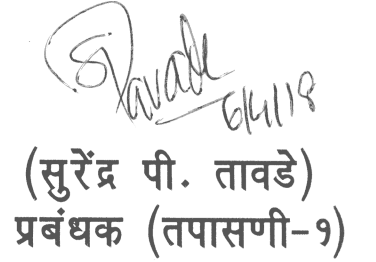 STavade
6/4/18
(सुरेंद्र पी. तावडे)
प्रबंधक (तपासणी-१)